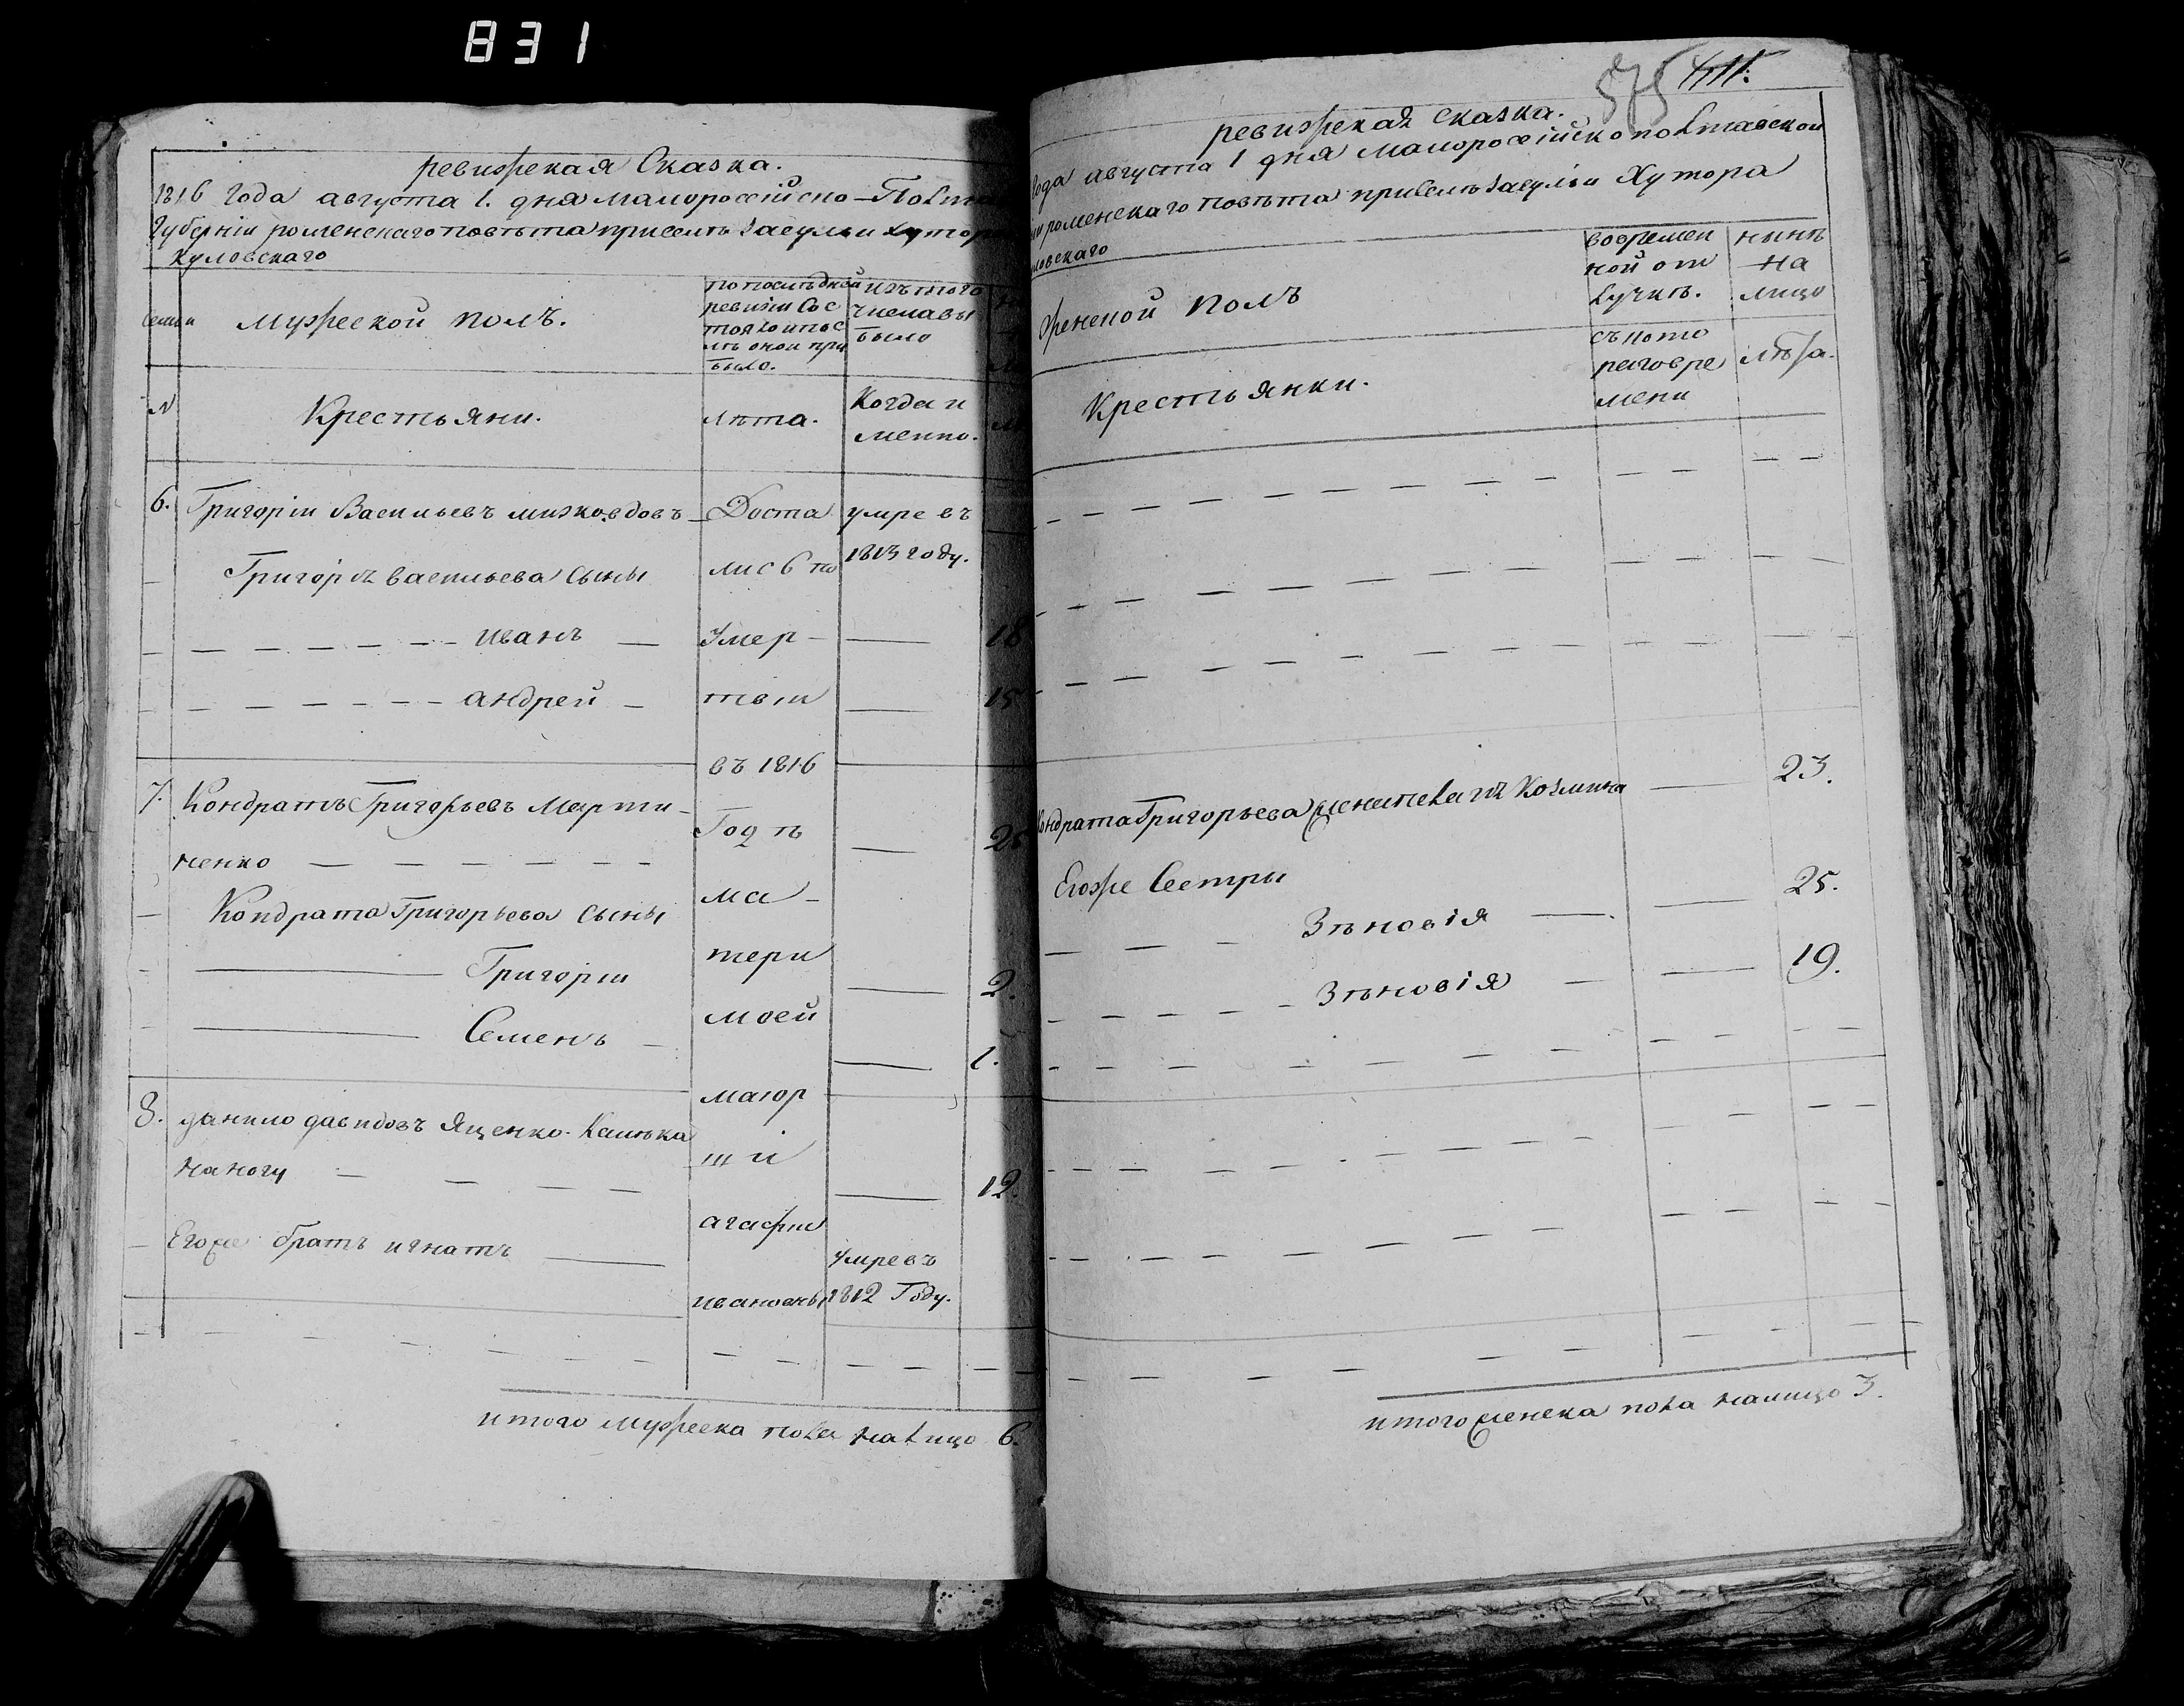 831
ревизская Сказка.
1816 Года августа 1. дня малоросийско-Полта
Губерніи роменскаго повѣта приселѣ Засульи хутор
куловскаго
семьи
Мужеской полъ.
попослѣдней
ревизіи Сос
тояло и пос
лѣ оной при
было.
изътого
числа вы
было
№
Крестьяни.
лѣта.
Когда и
менно.
6. Григоріи Васильевъ
Доста
умре въ
1813 году.
Григорія васильева Сыны
лис по
иванъ
Умер
18
андрей
твіи
15
въ 1816
7. Кондратъ Григорьевъ Марти-
ненко
Год ѣ
25
Кондрата Григорьева Сыны
ма-
Григоріи
тери
2.
Семенъ
моей
1.
8. данило давидовъ Ященко. Калѣка
маіор
на ногу
ши
12.
Егоже братъ игнатъ
агафіи
умре въ
ивановны
1812 Году.
итого мужеска пола налицо 6.
575
411.
ревизская сказка.
Года августа 1 дня малоросійско полтавской
іи роменскаго повѣта приселѣ Засульи Хутора
ловскаго
Женской полъ
вовремен
ной от
лучкѣ.
нынѣ
на
лицо
Крестьянки.
съкото
раго вре
мени
лѣта.
ондрата Григорьева жена пелагія Козмина
23.
Егоже Сестры
Зѣновія
25.
Зѣновія
19.
итого женска пола налицо 3.